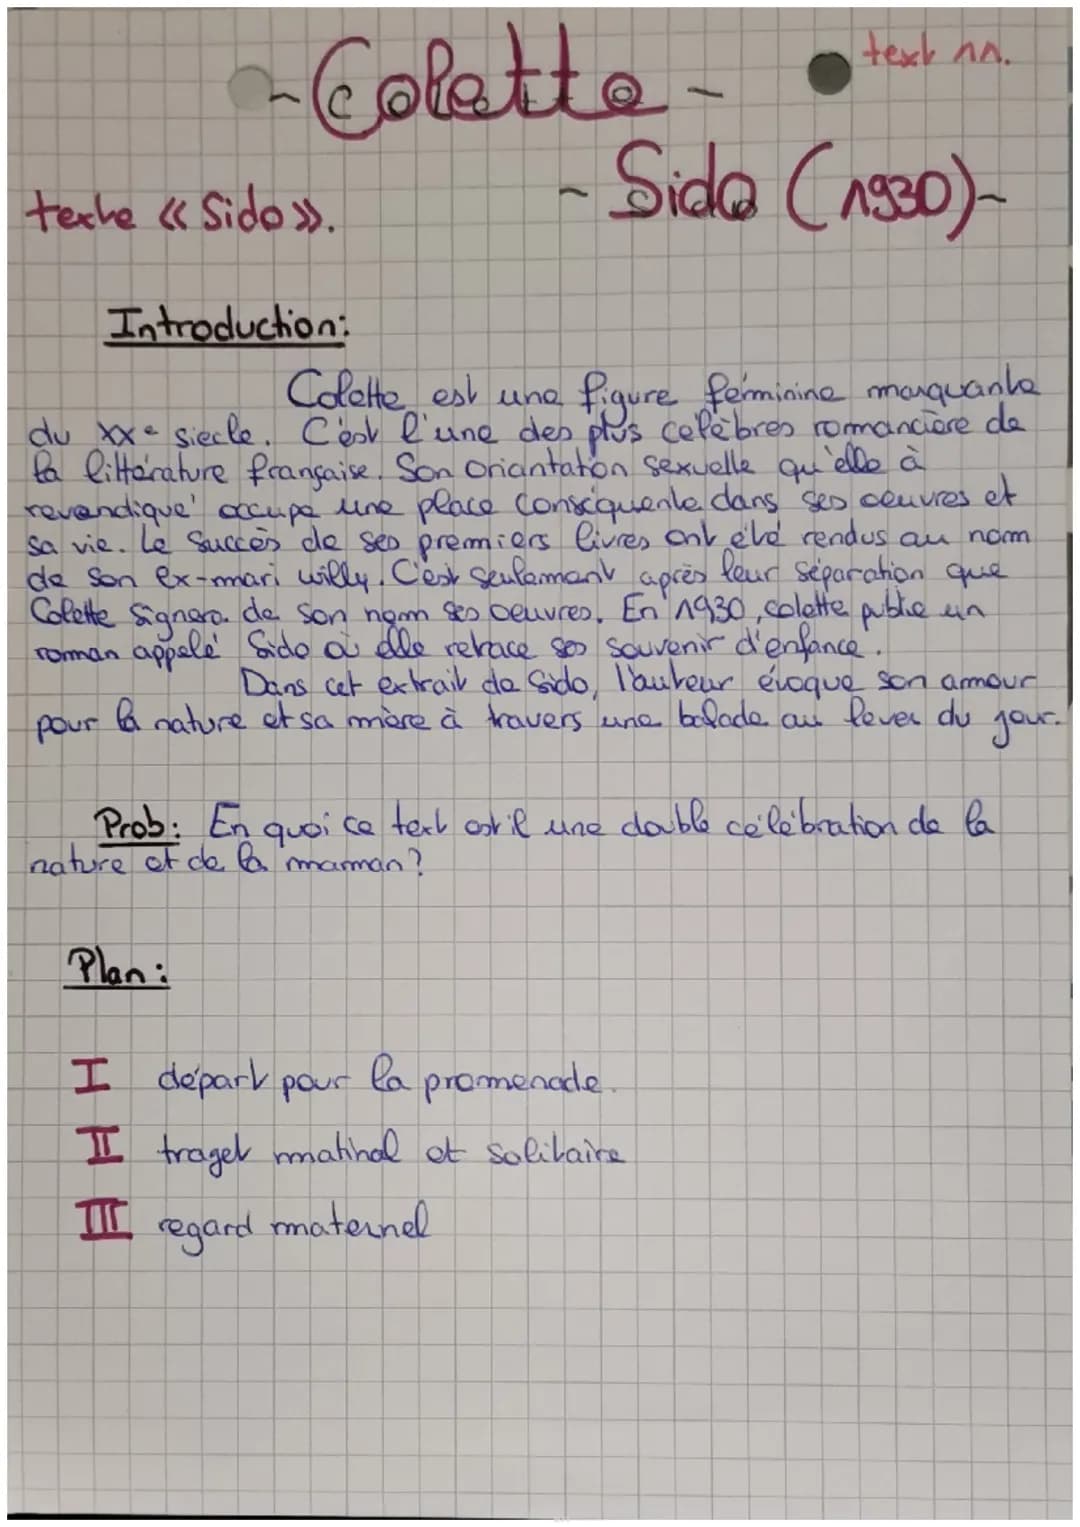 - Colette -
text 11.
- Sido (1930)-
texte « Sido ».
Introduction:
Colette est une figure féminine marquante
du XXe siecle. C'est l'une des plus celèbres romancière de
la littérature française. Son oriantation sexuelle qu'elle à
revendiqué occupe une place conséquente dans ses oeuvres et
sa vie. Le succès de ses premiers livres ont été rendus au nom
de son ex-mari willy. C'est seulement après leur séparation que
Colette signera de son nom ses oeuvres. En 1930, colette publie un
roman appelé Sido où elle retrace ses souvenir d'enfance.
Dans cet extrait de Sido, l'auteur évoque son amour
pour la nature et sa mère à travers une balade au lever du jour.
Prob: En quoi ce text est il une double célébration de la
nature et de la maman?
Plan:
I départ pour la promenade.
II traget matinal et solitaire
III regard maternel